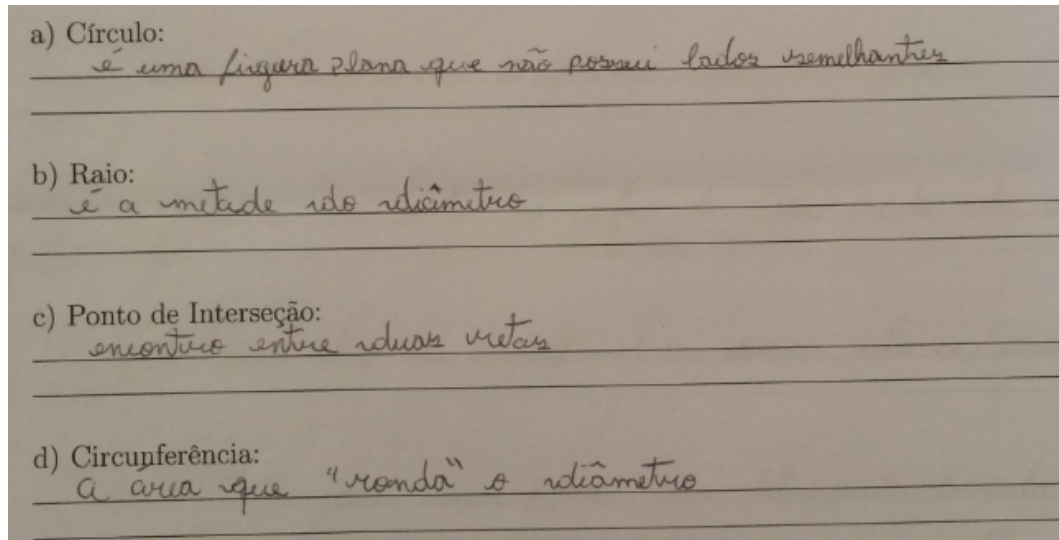 a) Círculo:
é uma fingura plana que não possui lados semelhantes
b) Raio:
é a metade do diâmetro
c) Ponto de Interseção:
encontro entre duas retas
d) Circunferência:
a área que "ronda" o diâmetro